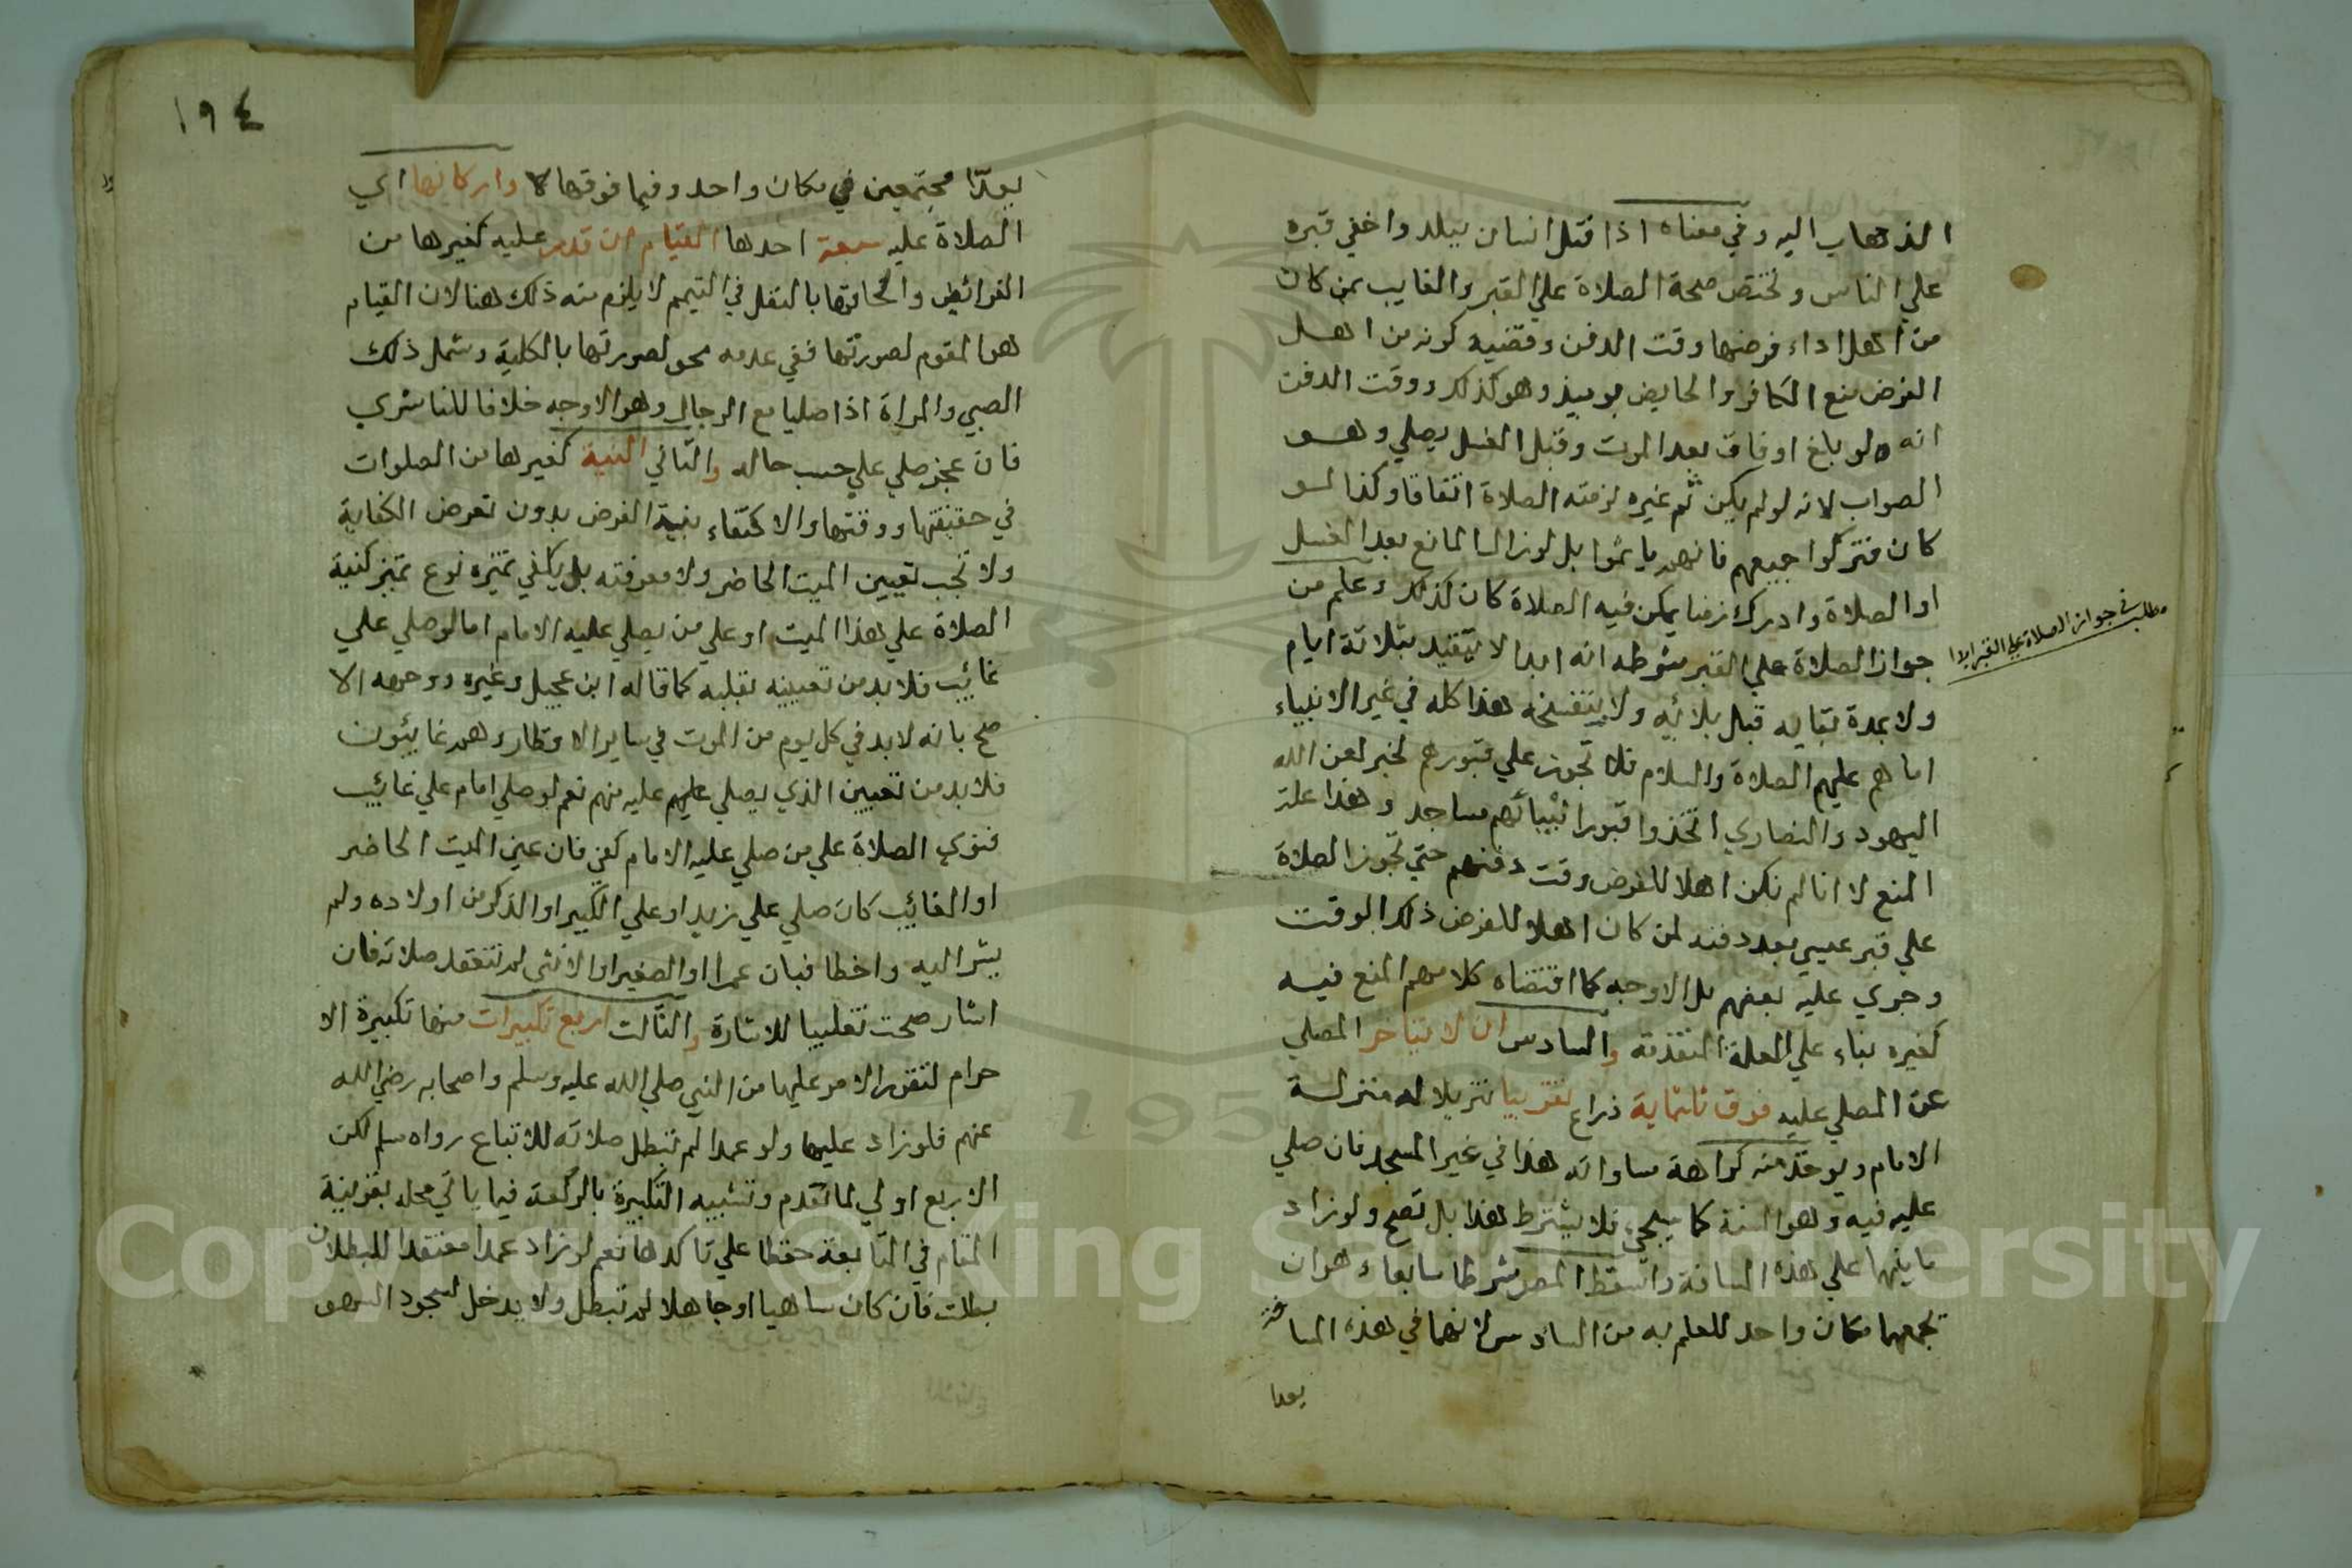 الذهاب اليه وفي معناه اذا قتل انسان ببلد واخفي قبره
علي الناس وتختص صحة الصلاة علي القبر والغايب بمن كان
من اهل اداء فرضها وقت الدفن وقضيه كونه من اهل
الفرض منع الكافر والحايض يوميذ وهو كذلك ووقت الدفن
انه لو بلغ او فاق بعد الموت وقبل الغسل يصلي وهو
الصواب لانه لو لم يكن ثم غيره لزمته الصلاة اتفاقا وكذا لو
كان فتركوا جميعهم فانهم ياثموا بل لو زال المانع بعد الغسل
او الصلاة وادرك زمنا يمكن فيه الصلاة كان كذلك وعلم من
جواز الصلاة علي القبر بشرطه انه ابدا لا يتقيد بثلاثة ايام
مطلب في جواز الصلاة علي القبر ابدا
ولا بمدة بقايه قبل بلائه ولا بتفسخه هذا كله في غير الانبياء
اما هم عليهم الصلاة والسلام فلا تجوز علي قبورهم لخبر لعن الله
اليهود والنصاري اتخذوا قبور انبيائهم مساجد وهذا علة
المنع لا انا لم نكن اهلا للفرض وقت دفنهم حتي تجوز الصلاة
علي قبر عيسي بعد دفنه لمن كان اهلا للفرض ذلك الوقت
وجري عليه بعضهم بل الاوجه كما اقتضاه كلامهم المنع فيه
كغيره بناء علي العلة المتقدمة والسادس ان لا يتاخر المصلي
عن المصلي عليه فوق ثلثماية ذراع تقريبا تنزيلا له منزلة
الامام ويوخذ منه كراهة مساواته هذا في غير المسجد فان صلي
عليه فيه وهو السنة كما سيجي فلا يشترط هذا بل تصح ولو زاد
ما بينهما علي هذه المسافة واسقط المصر شرطا سابعا وهو ان
تجمعهما مكان واحد للعلم به من السادس لانهما في هذه المسافة
يعدا
١٩٤
يعدّا مجتمعين في مكان واحد وفيما فوقها لا واركانها اي
الصلاة عليه سبعة احدها القيام ان قدر عليه كغيرها من
الفرائض والحاقها بالنفل في التيمم لا يلزم منه ذلك هنا لان القيام
هو المقوم لصورتها ففي عدمه محو لصورتها بالكلية وشمل ذلك
الصبي والمراة اذا صليا مع الرجال وهو الاوجه خلافا للناشري
فان عجز صلي علي حسب حاله والثاني النية كغيرها من الصلوات
في حقيقتها ووقتها والاكتفاء بنية الفرض بدون تعرض الكفاية
ولا تجب تعيين الميت الحاضر ولا معرفته بل يكفي تميزه نوع تميز كنية
الصلاة علي هذا الميت او علي من يصلي عليه الامام اما لو صلي علي
غائب فلا بد من تعيينه بقلبه كما قاله ابن عجيل وغيره ووجهه الا
صح بانه لا بد في كل يوم من الموت في ساير الاقطار وهم غايبون
فلا بد من تعيين الذي يصلي عليهم عليه منهم نعم لو صلي امام علي غائب
فنوي الصلاة علي من صلي عليه الامام كفي فان عين الميت الحاضر
او الغائب كان صلي علي زيد او علي الكبير او الذكر من اولاده ولم
يشر اليه واخطا فبان عمرا او الصغير او الانثي لم تنعقد صلاته فان
اشار صحت تغليبا للاشارة والثالث اربع تكبيرات منها تكبيرة الا
حرام لتقرر الامر عليها من النبي صلي الله عليه وسلم واصحابه رضي الله
عنهم فلو زاد عليها ولو عمدا لم تبطل صلاته للاتباع رواه مسلم لكن
الاربع اولي لما تقدم وتشبيه التكبيرة بالركعة فيما ياتي محله بقرينة
المقام في المتابعة حفظا علي تاكدها نعم لو زاد عمدا معتقدا للبطلان
بطلت فان كان ساهيا او جاهلا لم تبطل ولا يدخل لسجود السهو
Copyright © King Saud University
195